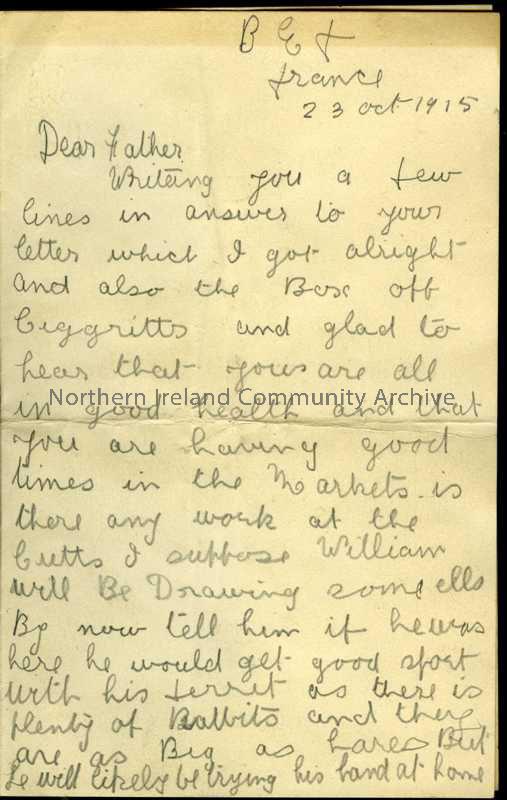 B E F
France
23 oct 1915
Dear Father
Writing you a few
lines in answer to your
letter which I got alright
and also the Box off
Ciggritts and glad to
hear that yous are all
Northern Ireland Community Archive
in good health and that
you are having good
times in the Markets. is
there any work at the
Cutts I suppose William
will Be Drawing some ells
By now tell him if he was
here he would get good sport
with his ferrit as there is
plenty of Rabbits and they
are as Big as hares But
he will likely be trying his hand at home